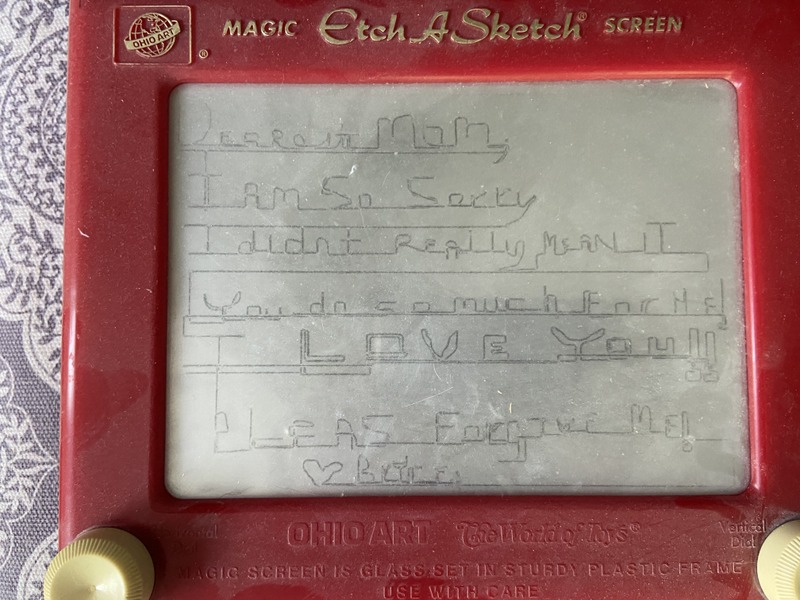 OHIO ART ® MAGIC Etch A Sketch® SCREEN
MOM,
I AM SO SORRY
I didn't REALLY MEAN IT
You do so much For Me!
I LOVE You!!
PLEAS Forgive ME!
♡
OHIO ART The World of Toys®
Horizontal Dial
Vertical Dial
MAGIC SCREEN IS GLASS SET IN STURDY PLASTIC FRAME
USE WITH CARE